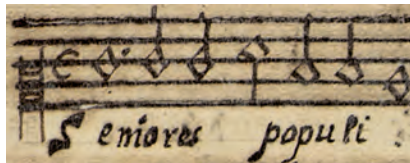 Seniores populi